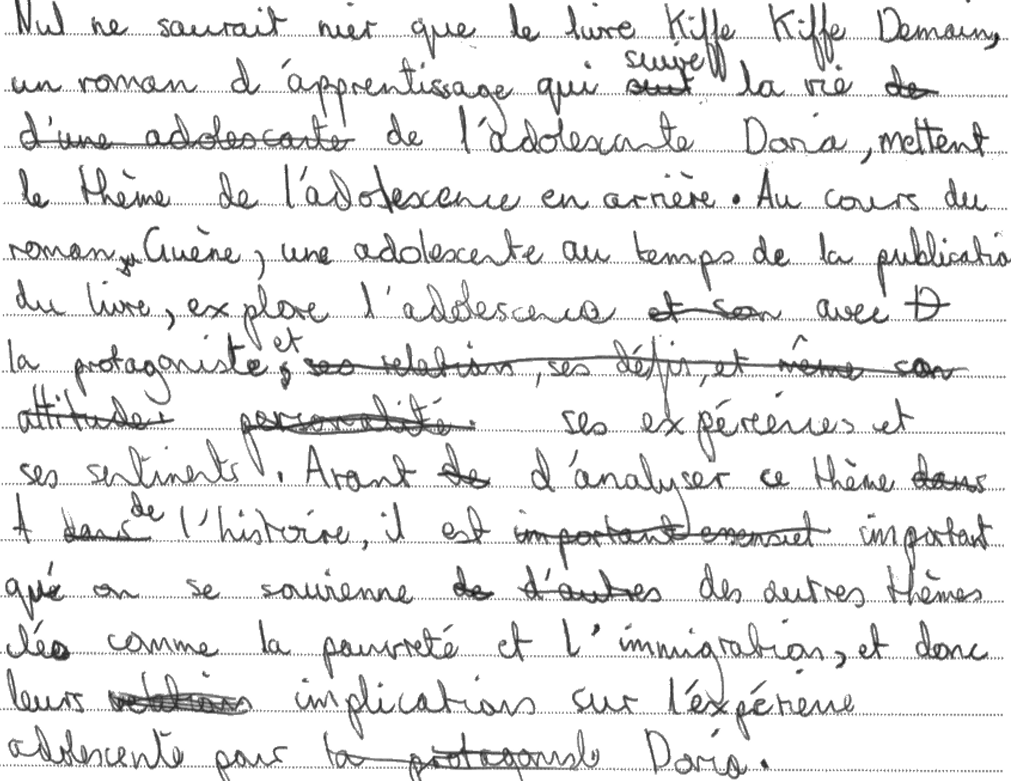 Nul ne saurait nier que le livre Kiffe Kiffe Demain,
un roman d'apprentissage qui suivent la vie de
d'une adolescante de l'adolescante Doria, mettent
le thème de l'adolescence en arrière. Au cours du
roman, Guène, une adolescente au temps de la publicatio
du livre, explore l'adolescence et son avec D
la protagoniste, et ses relations, ses défis, et même son
attitude personalité. ses expériences et
ses sentiments. Avant de d'analyser ce thème dans
dans de l'histoire, il est important essensiel important
qué on se souvienne de d'autres des autres thèmes
clés comme la pauvreté et l'immigration, et donc
leurs relations implications sur l'expérience
adolescente pour la protagoniste Doria.